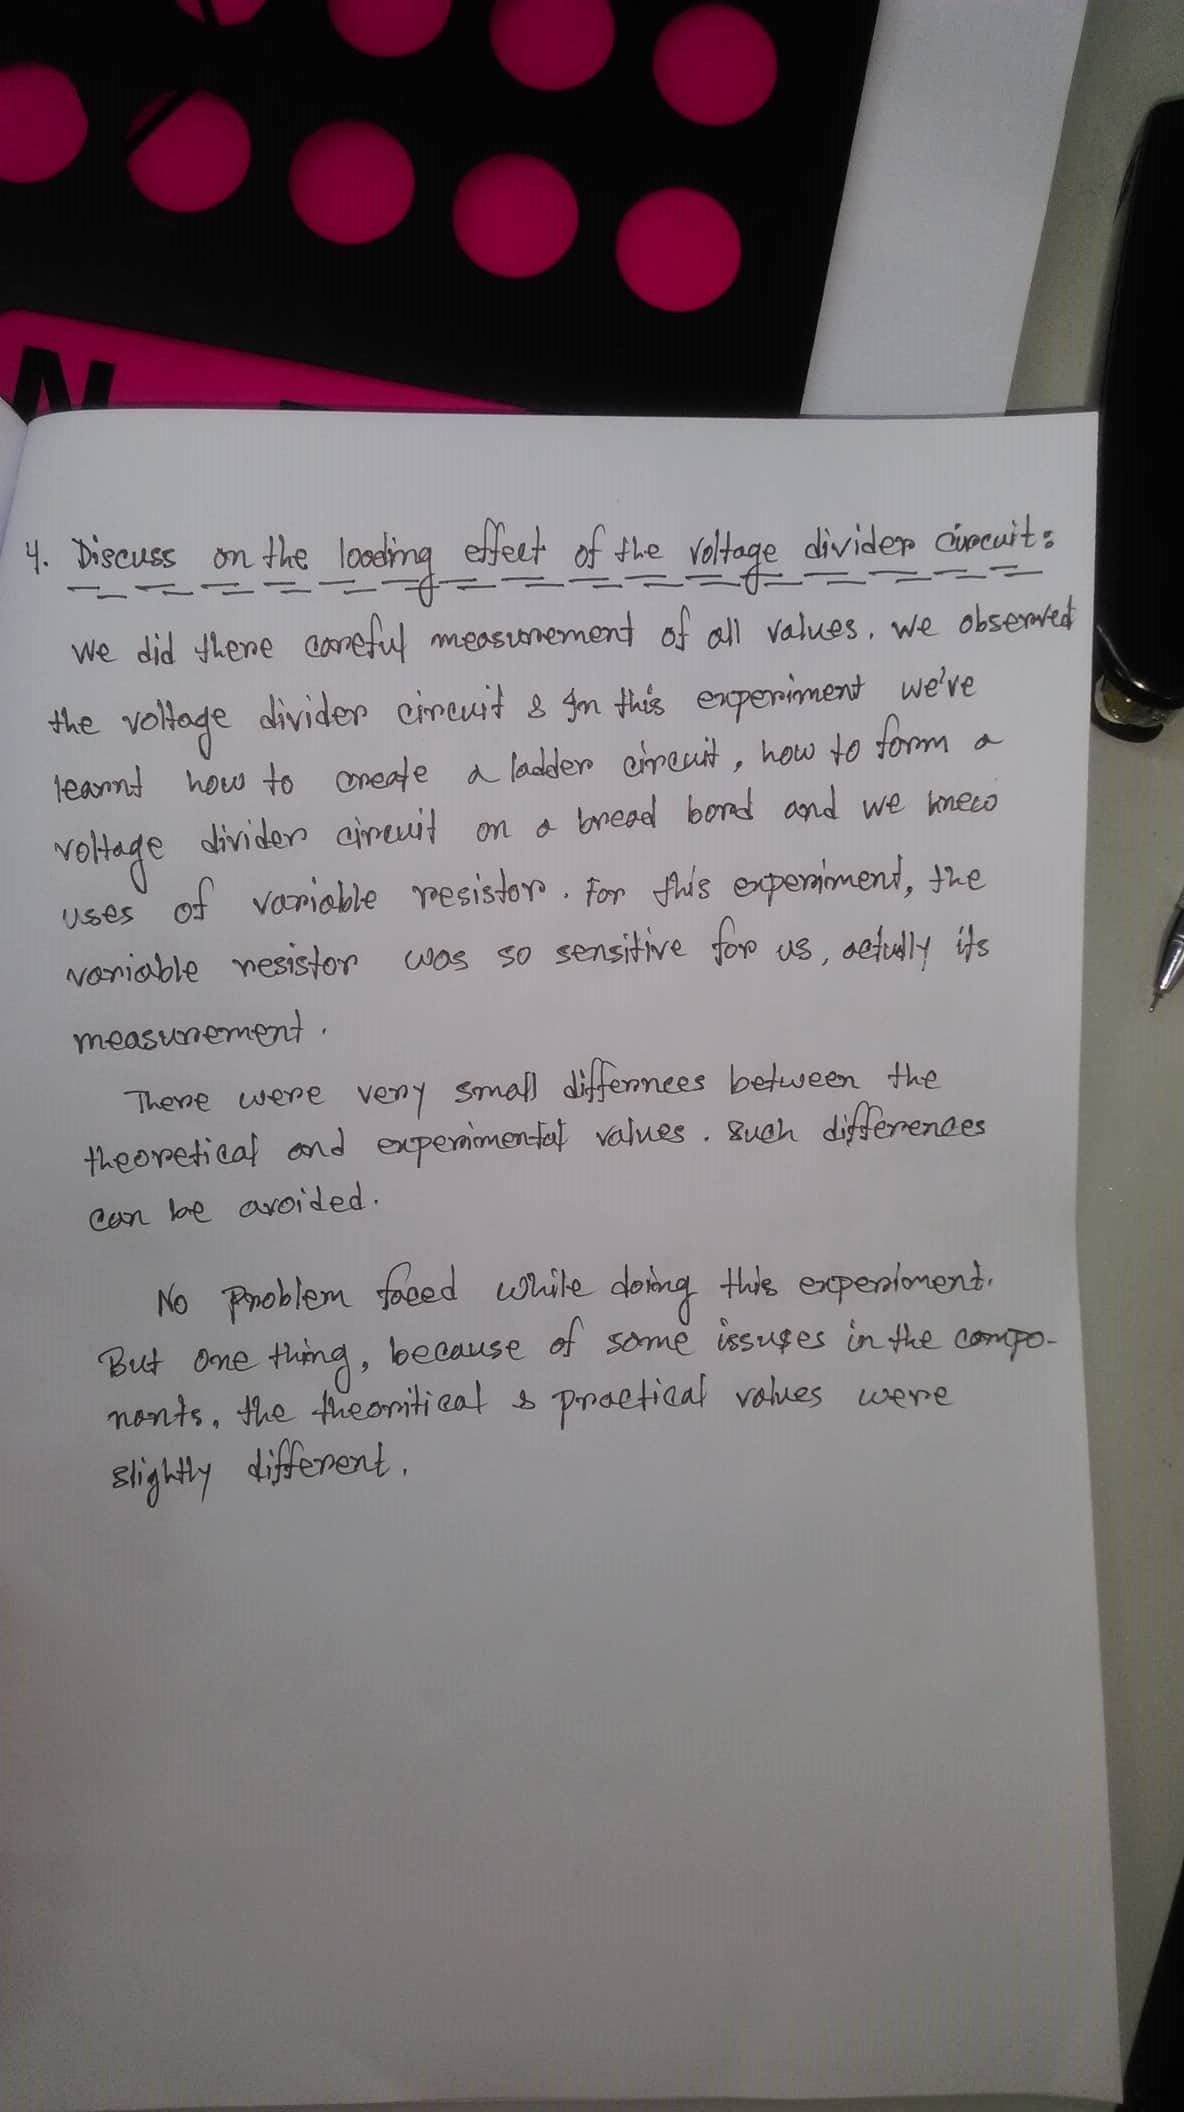 N
4. Discuss on the loading effect of the voltage divider circuit:
We did there careful measurement of all values. We observed
the voltage divider circuit & In this experiment we've
learnt how to create a ladder circuit, how to form a
voltage divider circuit on a bread bord and we knew
uses of variable resistor. For this experiment, the
variable resistor was so sensitive for us, actully its
measurement.
There were very small differnces between the
theoretical and experimental values. Such differences
can be avoided.
No Problem faced while doing this experioment.
But one thing, because of some issuses in the compo-
nants, the theoritical & practical values were
slightly different.